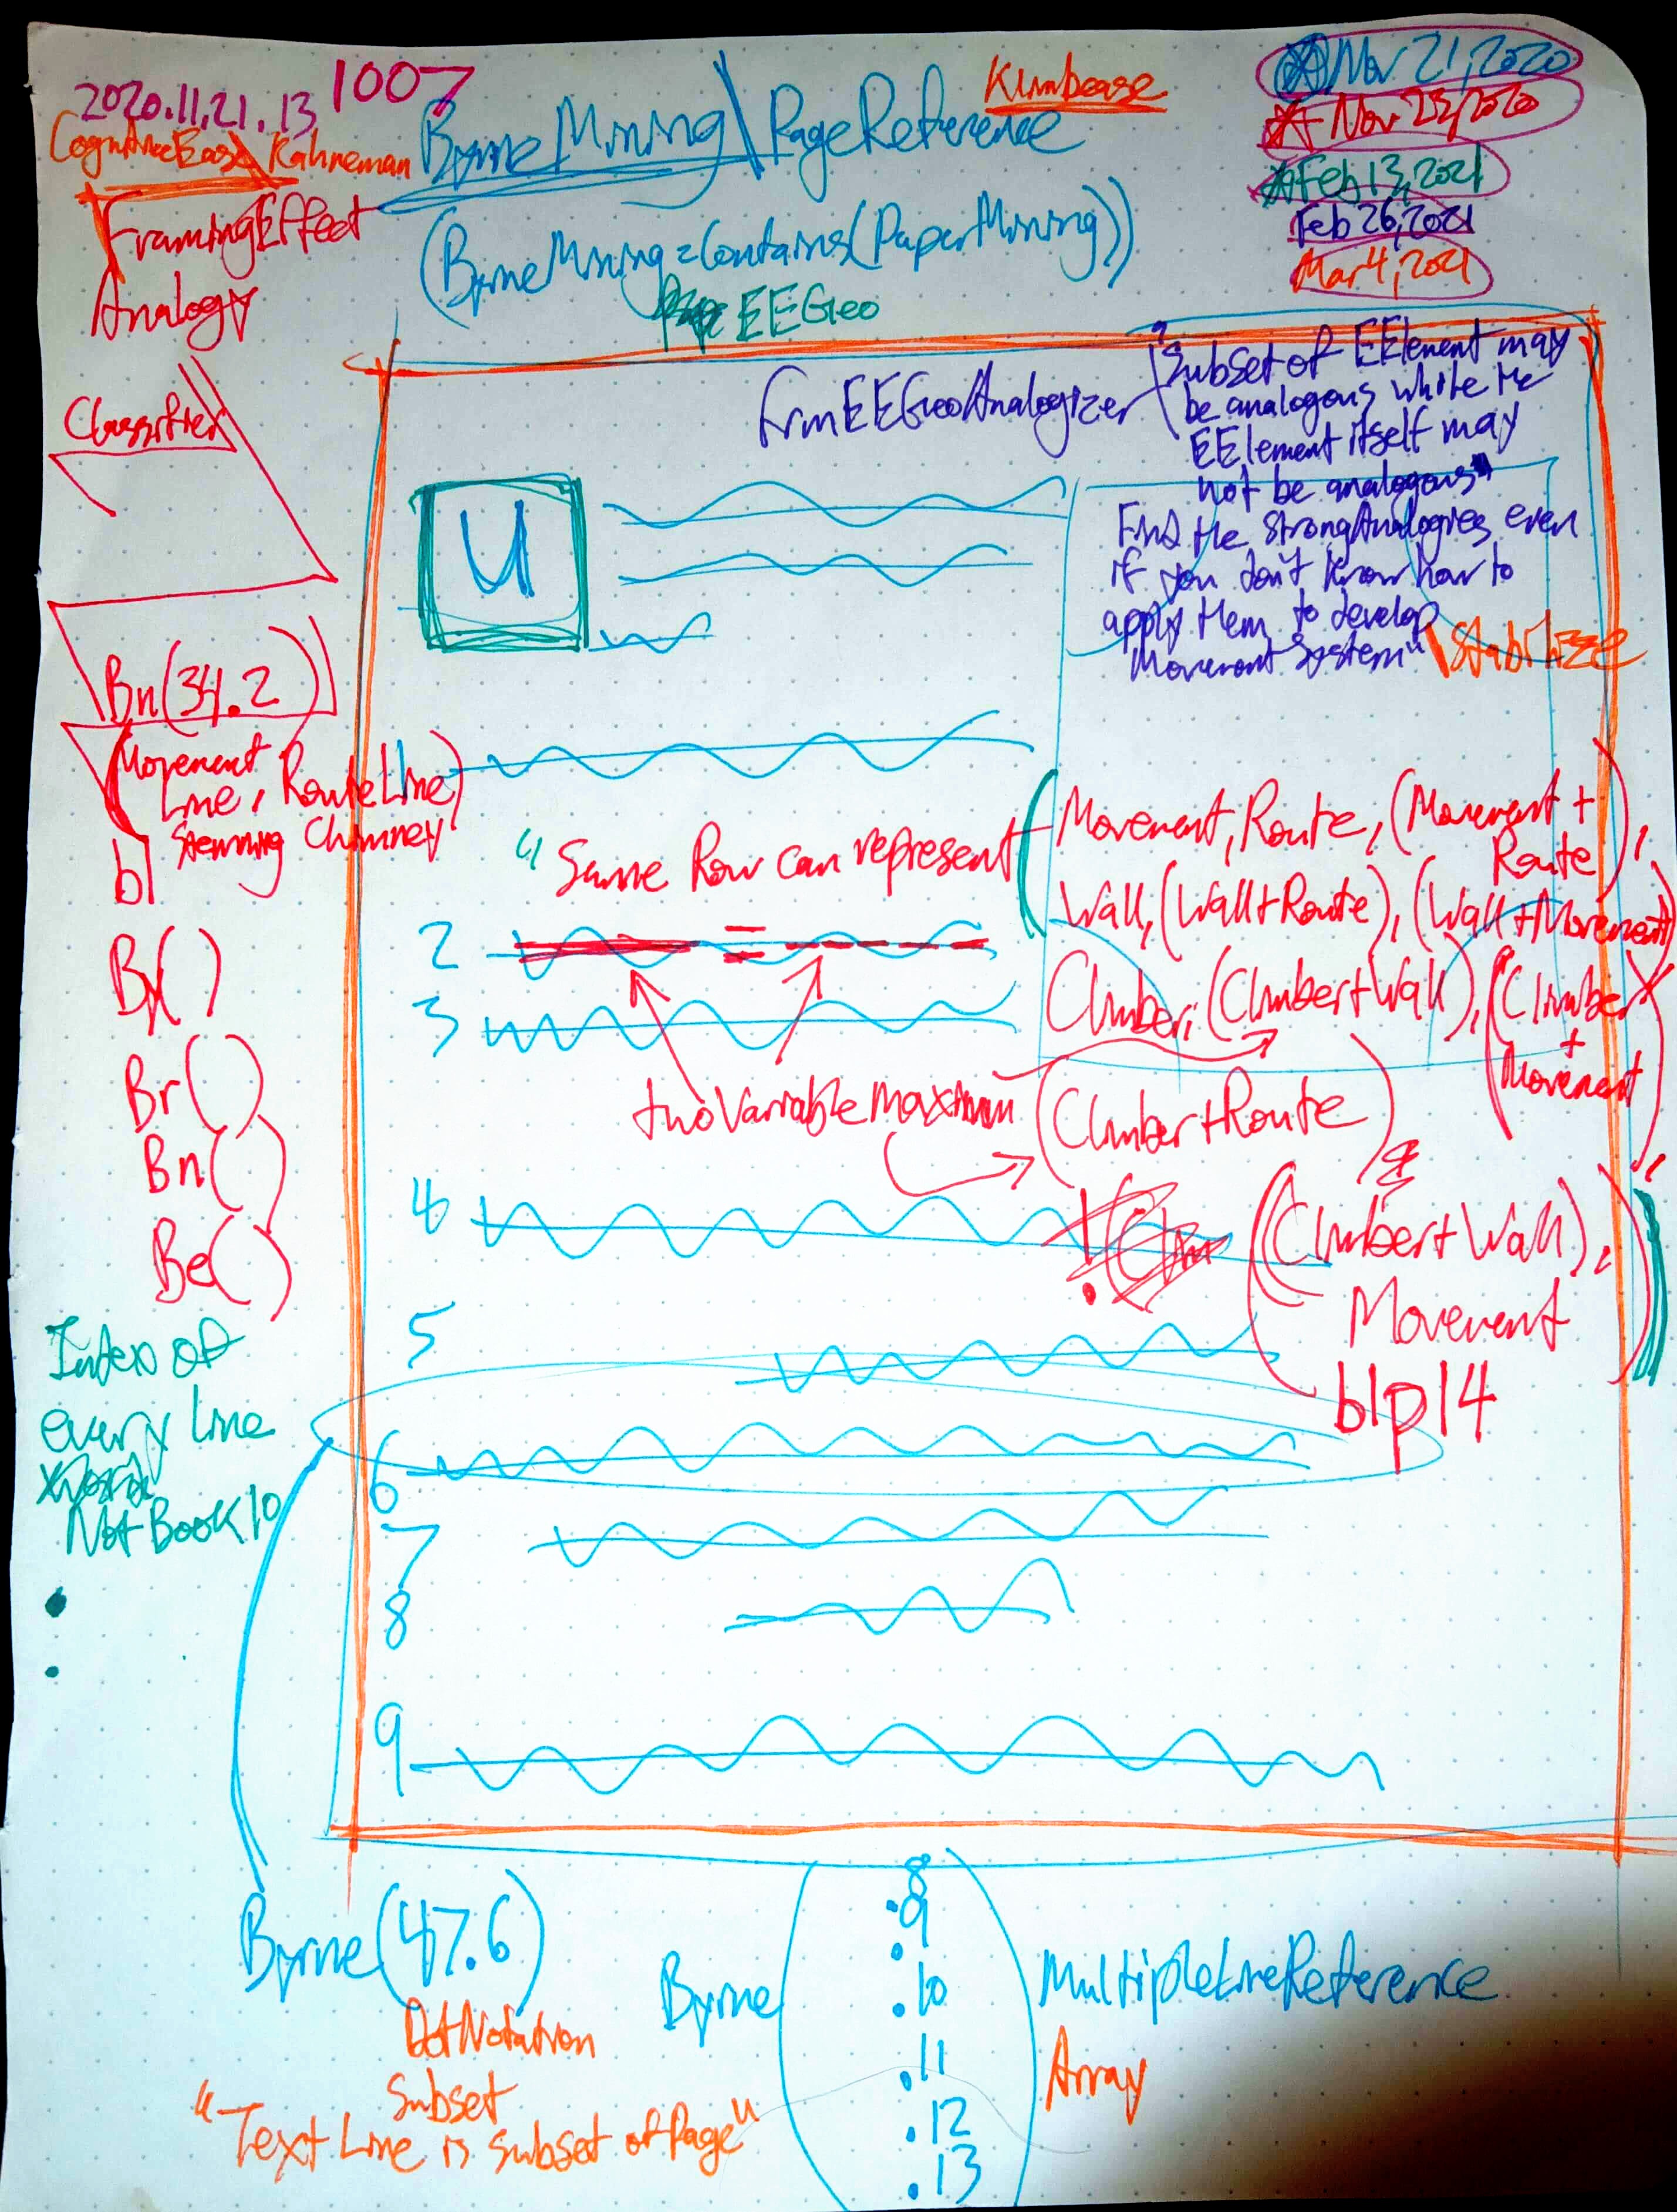 2020.11.21.13 1007
CognitiveEase\Kahneman
FramingEffect
Analogy
ByrneMining\PageReference
Klimbease
(ByrneMining=Contains(PaperMining))
EEGeo
Nov 21, 2020
Nov 23, 2020
Feb 13, 2021
Feb 26, 2021
Mar 4, 2021
Classifier
Bn(34.2)
(Movement
Line, RouteLine)
Stemming Chimney
b1
By()
Br()
Bn()
Be()
Index of
every line
Not Book 10
EEGeoAnalogizer
"Subset of EElement may
be analogous while the
EElement itself may
not be analogous"
Find the StrongAnalogies even
if you don't know how to
apply them to develop
Movement System"\Stabilize
U
1
"Same Row can represent
(Movement, Route, (Movement +
Route),
Wall, (Wall+Route), (Wall+Movement)
Climber, (Climber+Wall), (Climber
+
Movement)
2
3
twoVariableMaximum
(Climber+Route)
4
((Climber+Wall),
Movement
b1p14
5
6
7
8
9
Byrne(47.6)
DotNotation
Subset
"Text Line is subset of Page"
Byrne
8
.9
.10
.11
.12
.13
MultipleLineReference
Array